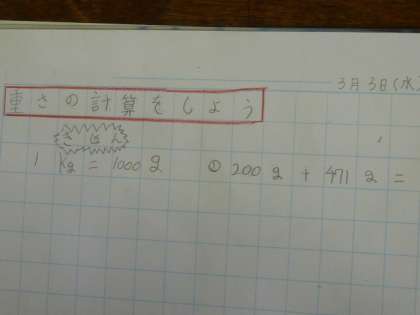 3月3日(水)
重さの計算をしよう
きほん
1 kg = 1000 g ① 200 g + 471 g =